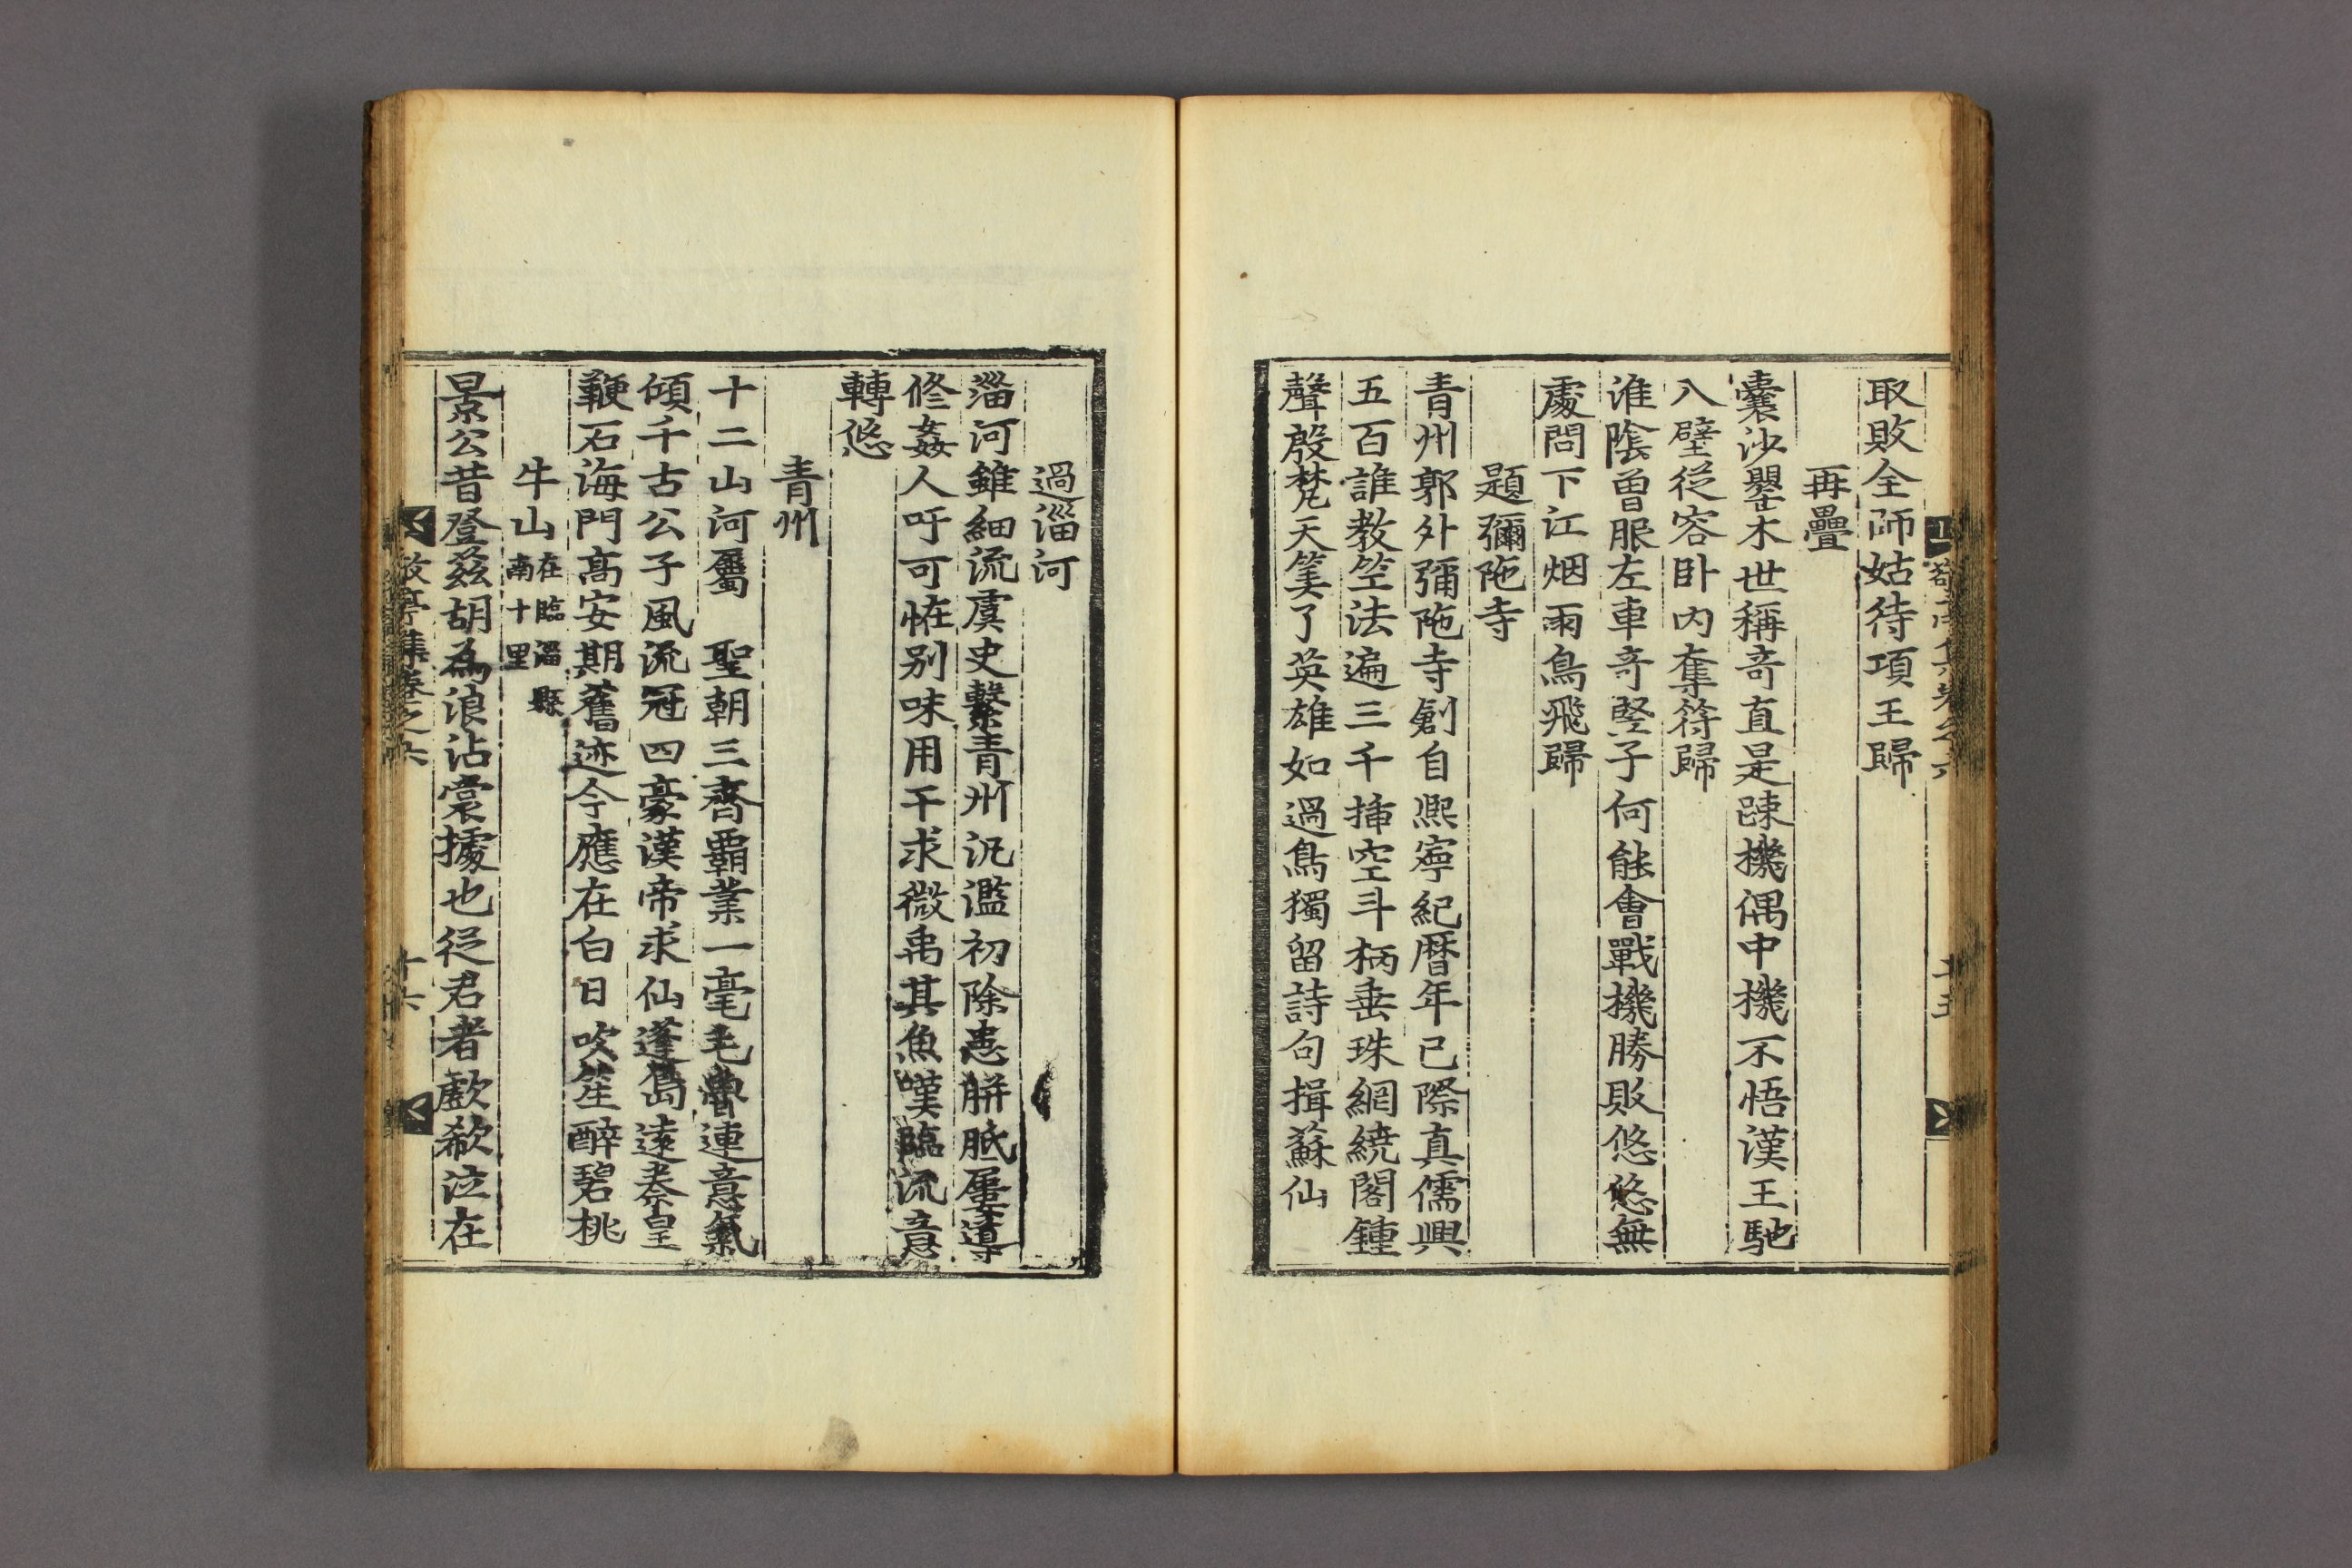 取敗全師姑待項王歸
再疊
囊沙罌木世稱奇直是踈機偶中機不悟漢王馳
入壁從容卧內奪符歸
淮陰曾服左車奇竪子何能會戰機勝敗悠悠無
處問下江烟雨鳥飛歸
題彌陁寺
青州郭外彌陁寺創自熙寧紀曆年已際真儒興
五百誰教笁法遍三千揷空斗柄垂珠網繞閣鍾
聲殷梵天筭了英雄如過鳥獨留詩句揖蘇仙
過淄河
淄河雖細流虞史繫青州汎濫初除患胼胝屢導
修姦人吁可恠别味用干求微禹其魚嘆臨流意
轉悠
青州
十二山河屬 聖朝三齊霸業一毫毛魯連意氣
傾千古公子風流冠四豪漢帝求仙蓬島遠秦皇
鞭石海門高安期舊迹今應在白日吹笙醉碧桃
牛山在臨淄縣南十里
景公昔登兹胡爲浪沾裳據也從君者歔欷泣在
敬亭集卷之六
十六